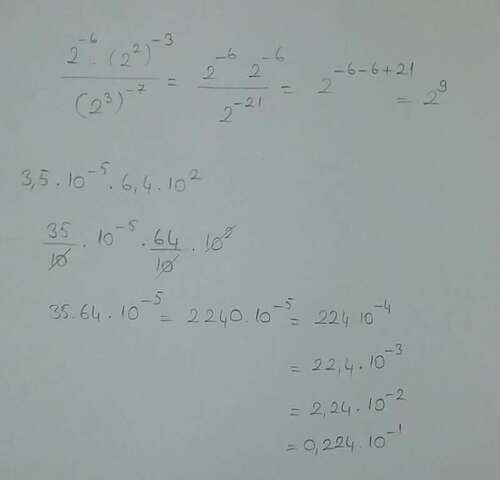 2^-6 · (2^2)^-3 / (2^3)^-7 = 2^-6 2^-6 / 2^-21 = 2^-6-6+21 = 2^9
3,5 · 10^-5 · 6,4 · 10^2
35/10 · 10^-5 · 64/10 · 10^2
35·64·10^-5 = 2240·10^-5 = 224 10^-4
= 22,4·10^-3
= 2,24·10^-2
= 0,224·10^-1